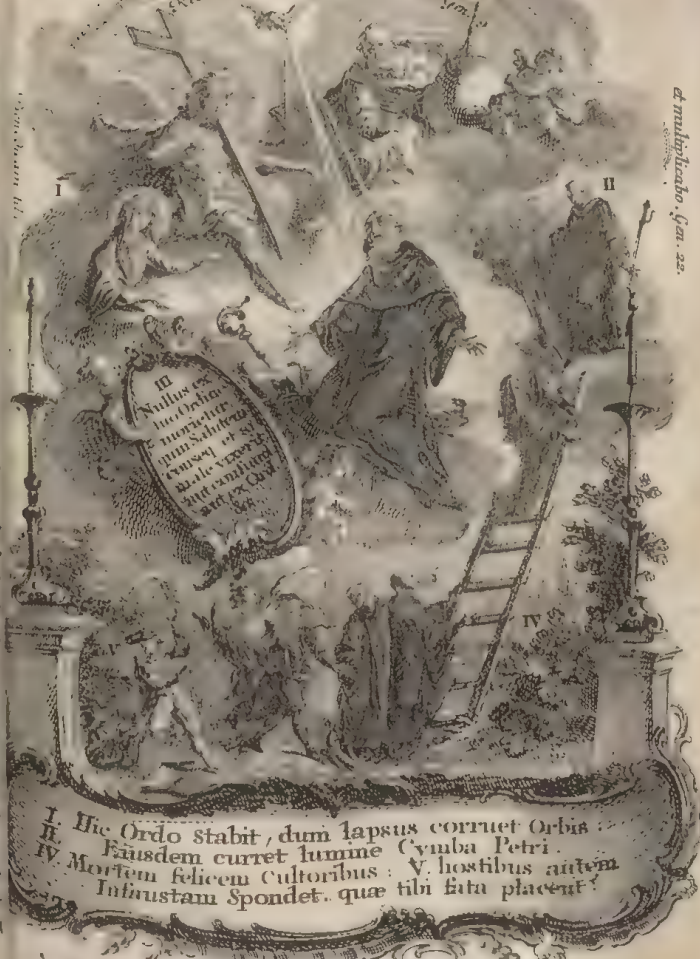 et multiplicabo. Gen. 22.
I
II
III
Nullus ex
hoc Ordine
morietur
quin Salutem
conseq. et si
male vixerit
aut
aut ex
IV
V
I. Hic Ordo stabit, dum lapsus corruet Orbis :
II. Eiusdem curret lumine Cymba Petri .
IV Mortem felicem Cultoribus : V. hostibus autem
Infaustam Spondet. quæ tibi fata placent?